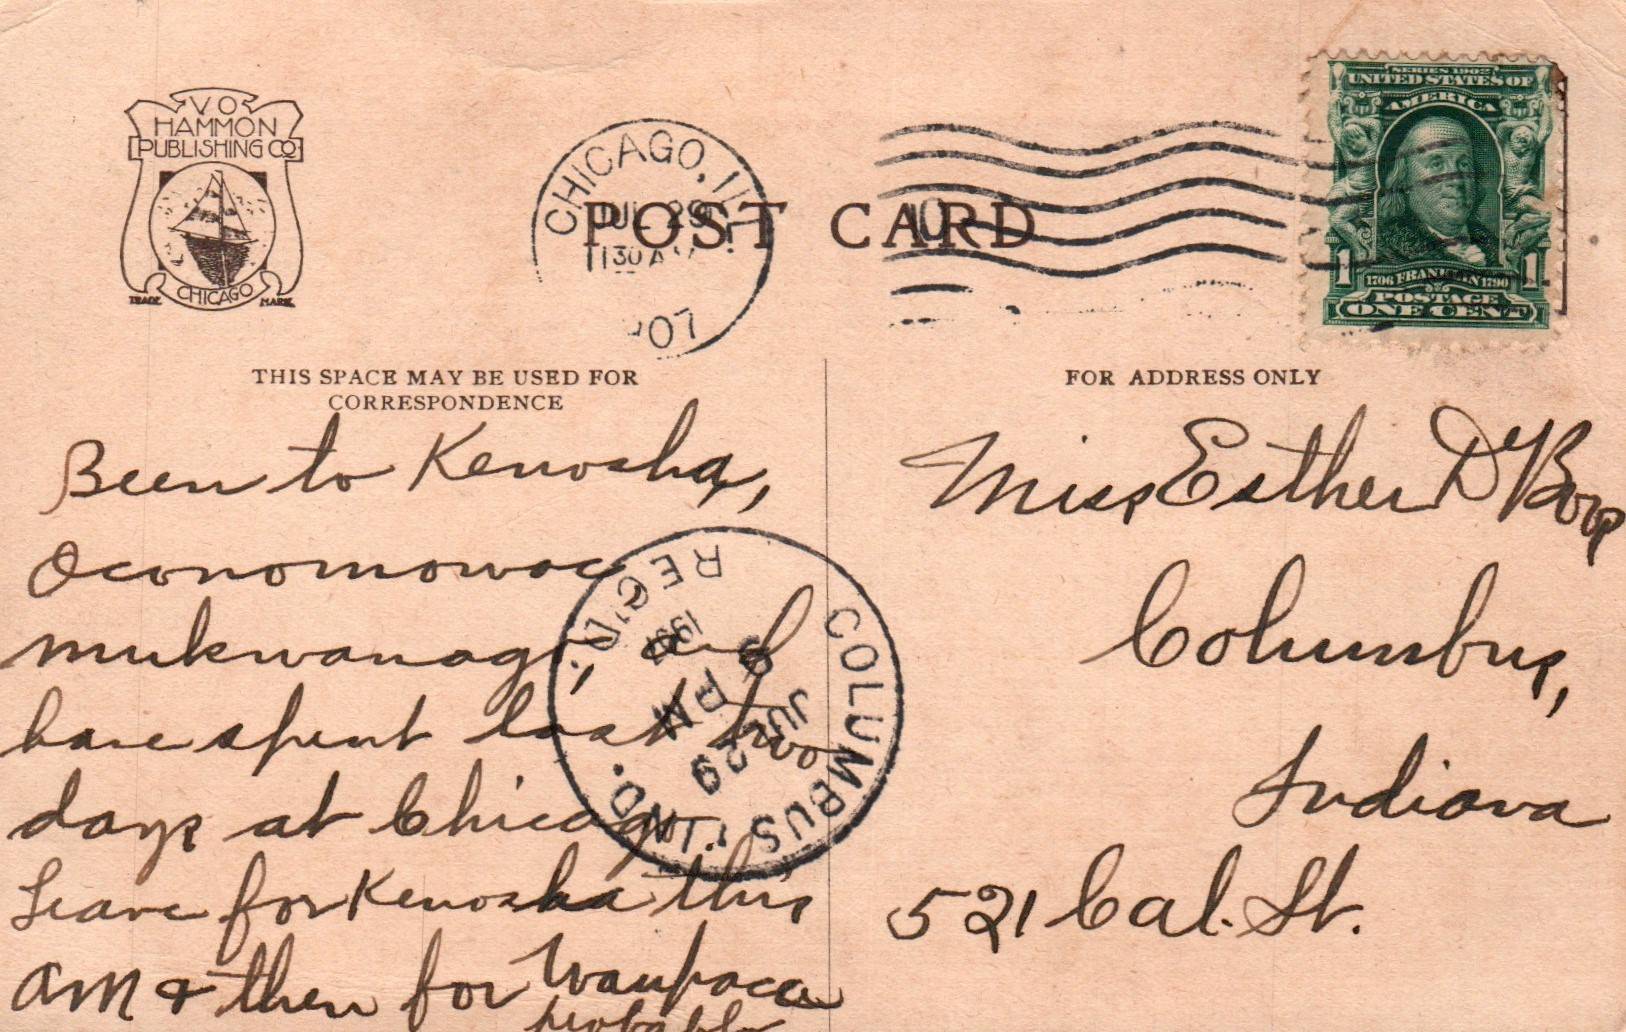 V O
HAMMON
PUBLISHING CO
CHICAGO
TRADE MARK
CHICAGO, ILL.
JUL 29
1130 A
'07
POST CARD
10
SERIES 1902
UNITED STATES OF
AMERICA
1 1706 FRANKLIN 1790 1
POSTAGE
ONE CENT
THIS SPACE MAY BE USED FOR
CORRESPONDENCE
Been to Kenosha,
Oconomowoc
Mukwanago, and
have spent last two
days at Chicago.
Leave for Kenosha this
AM & then for Waupaca
probably
COLUMBUS, IND.
REC'D.
JUL 29
9 PM
FOR ADDRESS ONLY
Miss Esther D
Columbus,
Indiana
521 Cal. St.